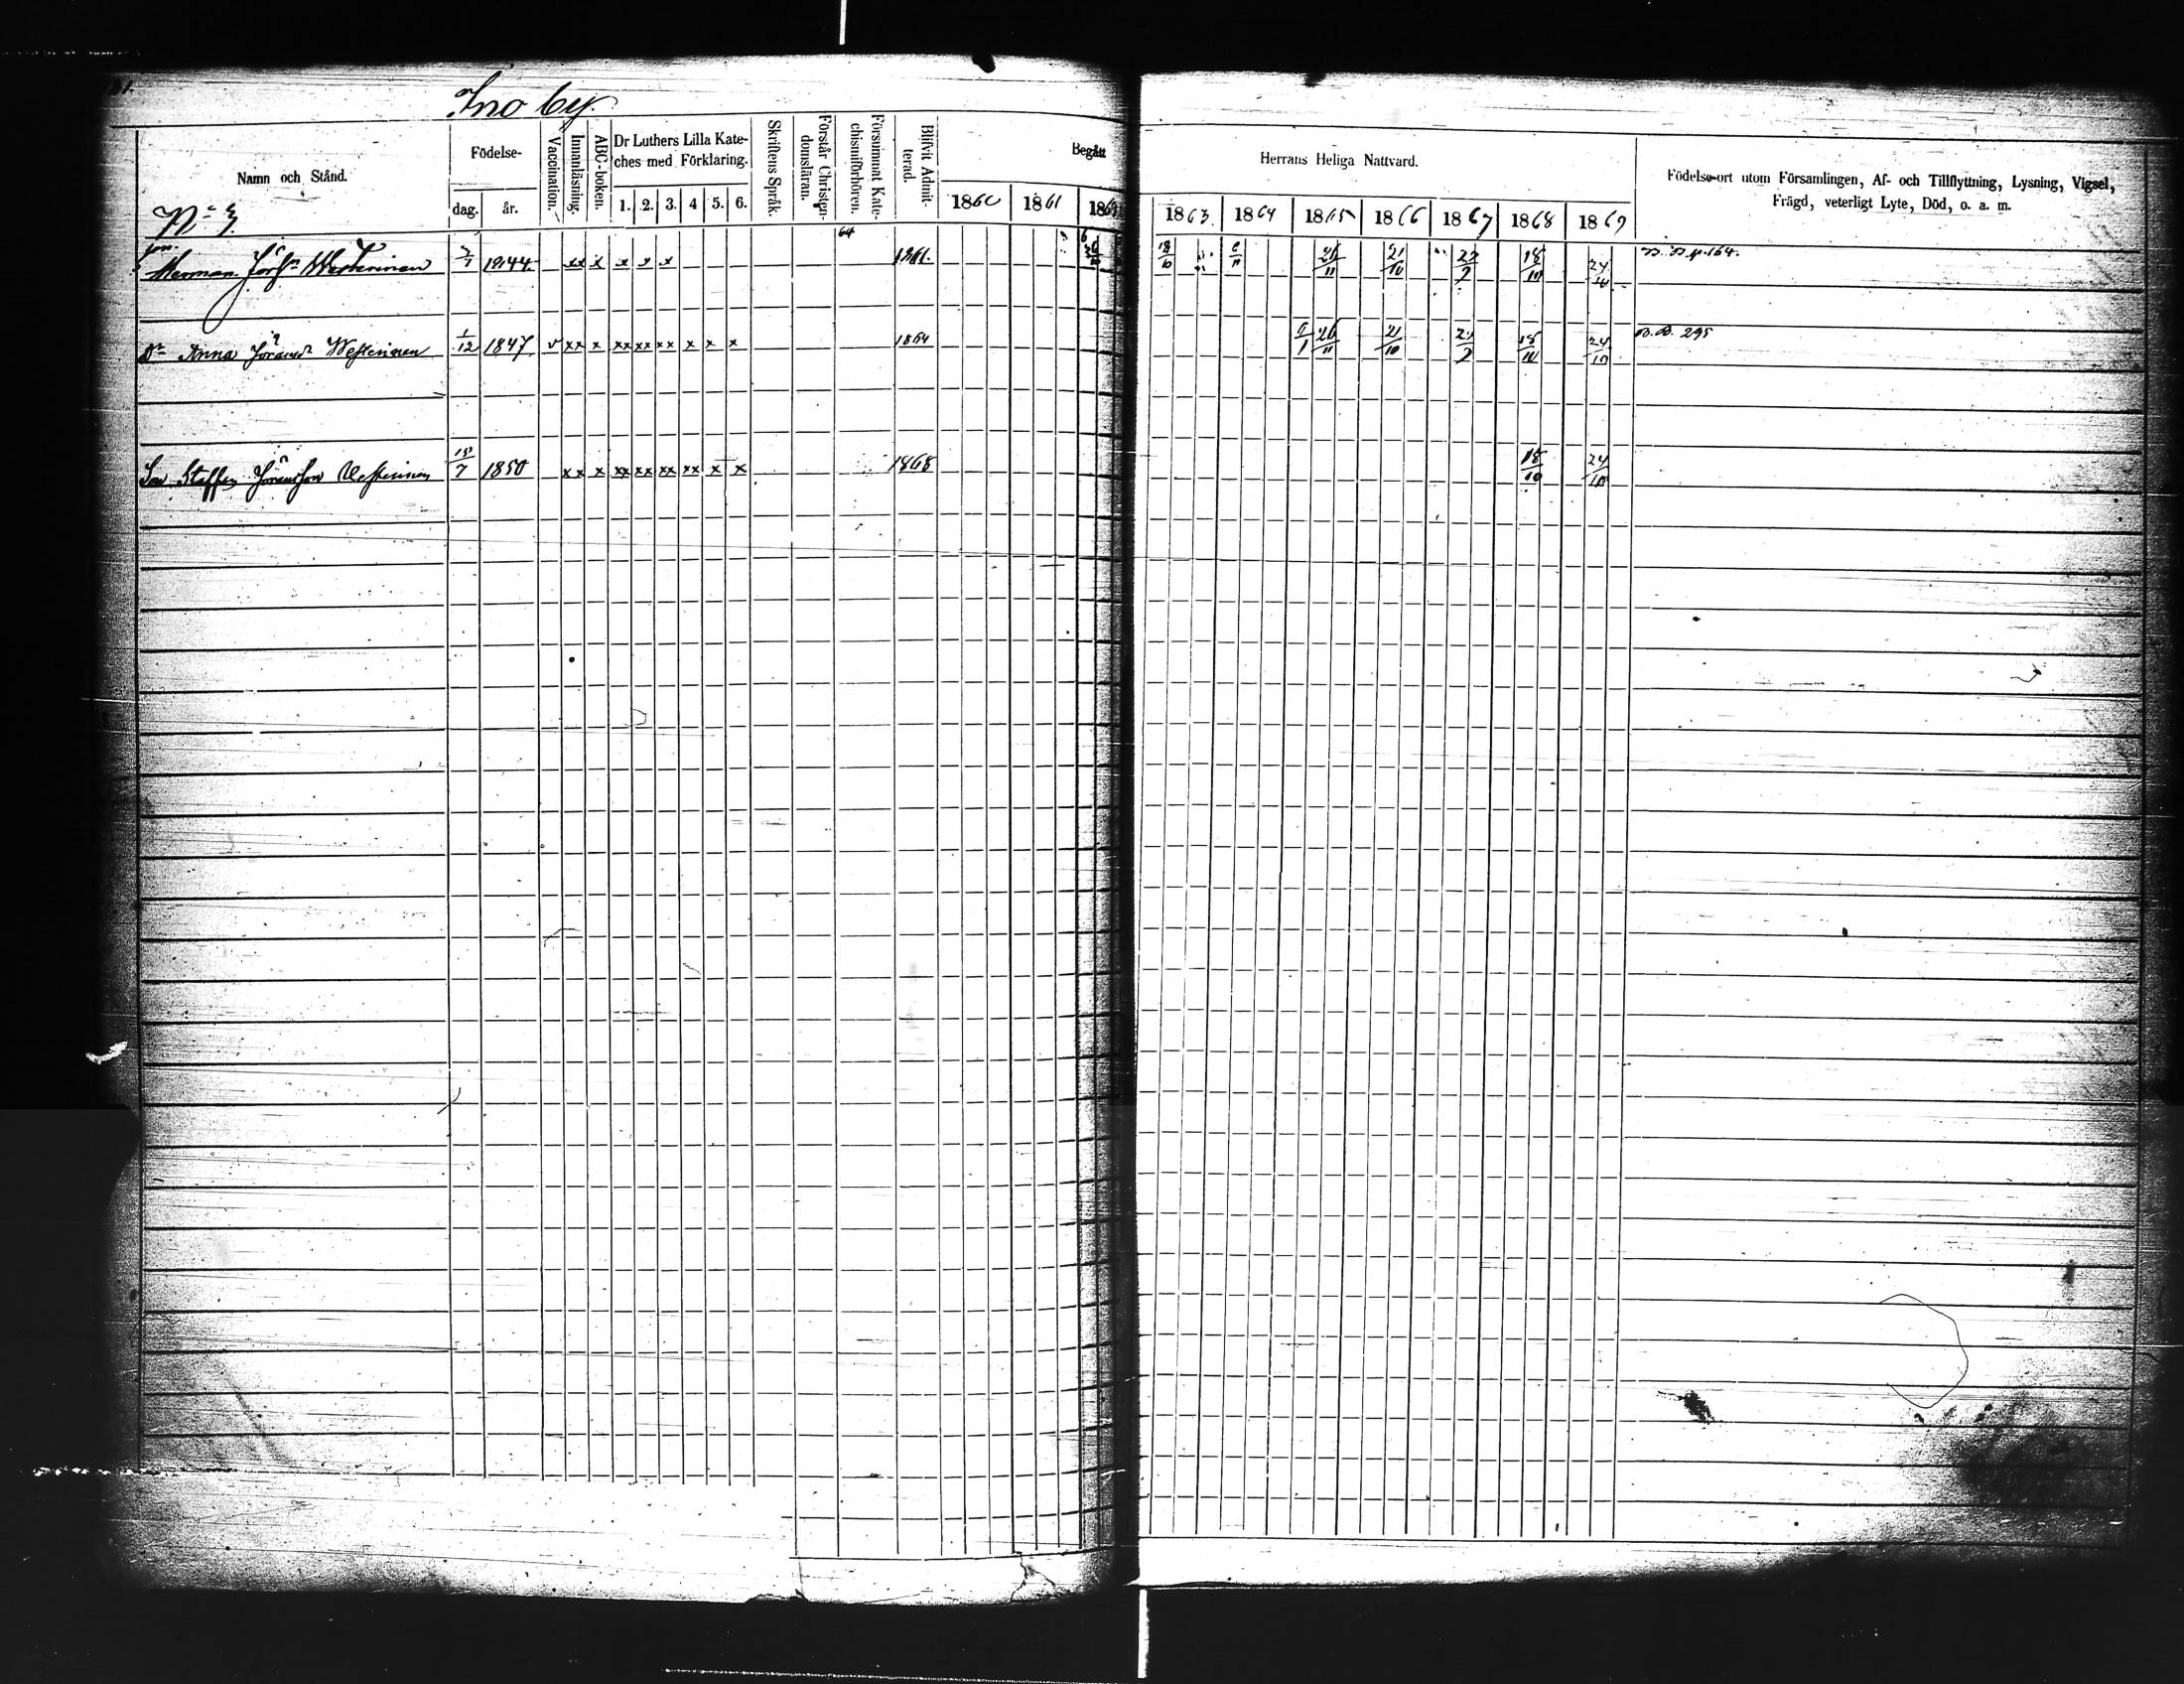 Ino by.
Namn och Stånd.
Födelse-
dag.
år.
Vaccination.
Innanläsning.
ABC-boken.
Dr Luthers Lilla Kate-
ches med Förklaring.
1. 2. 3. 4 5. 6.
Skriftens Språk.
Förstår Christen-
domsläran.
Försummat Kate-
chismiförhören.
Blifvit Admit-
terad.
Begått
1860 1861
Herrans Heliga Nattvard.
1863. 1864 1865 1866 1867 1868 1869
Födelse-ort utom Församlingen, Af- och Tillflyttning, Lysning, Vigsel,
Frägd, veterligt Lyte, Död, o. a. m.
64
Herman Westerinen 1844 xx x x x x 1861. 18/10 26/11 21/10 18/10 24/10 B. B. p. 164.
Dr Anna Westerinen 1/12 1847 v xx x xx xx xx x x x 1864 26/11 21/10 18/10 24/10 B. B. 295
Son Staffan Göransson Westerinen 1850 xx x xx xx xx xx x x 1868 18/10 24/10